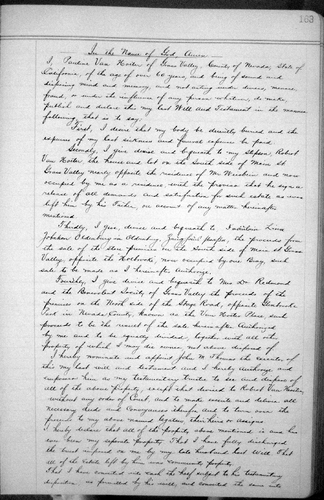 163
In the Name of God, Amen
I, Pauline Van Hoeter of Grass Valley, County of Nevada, State of
California, of the age of over 60 years, and being of sound and
disposing mind and memory, and not acting under duress, menace,
fraud, or under the influence of any person whatever, do make,
publish and declare this my last Will and Testament in the manner
following, that is to say,
First, I desire that my body be decently buried and the
expenses of my last sickness and funeral expenses be paid
Secondly, I give devise and bequeath to my stepson, Robert
Van Hoeter the house and lot on the South side of Main St
Grass Valley nearly opposite the residence of Mr and now
occupied by me as a residence with the proviso that he sign a
release of all demands and satisfaction for such estate as was
left him by his Father, on account of any matter hereinafter
mentioned
Thirdly, I give, devise and bequeath to
Oldenburg in Oldenburg the proceeds from
the sale of the store premises on the North side of Main St Grass
Valley, opposite the now occupied by one and such
sale to be made as I hereinafter authorize.
Fourthly I give devise and bequeath to Mrs Dr Redmond
and the Benevolent Society of Grass Valley the proceeds of the
premises on the North side of the Stage Road, opposite
in Nevada County, known as the Van Hoeter Place, such
proceeds to be the result of the sale hereinafter authorized
by me and to be equally divided, together with all other
property of which I may die seized not above disposed of
I hereby nominate and appoint John M. Thomas the executor of
this my last will and testament and I hereby authorize and
empower him as my testamentary Trustee to sell and dispose of
all of the above property, except that devised to Robert Van Hoeter,
without any order of Court, and to make execute and deliver all
necessary deeds and Conveyances therefor and to turn over the
proceeds to my above named legatees their heirs or assigns
I hereby declare that all of the property above mentioned is and has
ever been my separate property That I have fully discharged
the trust imposed on me by my late husband's last Will That
all of the estate left by him was community property
That I have counted into
as provided by his will, and converted the same into